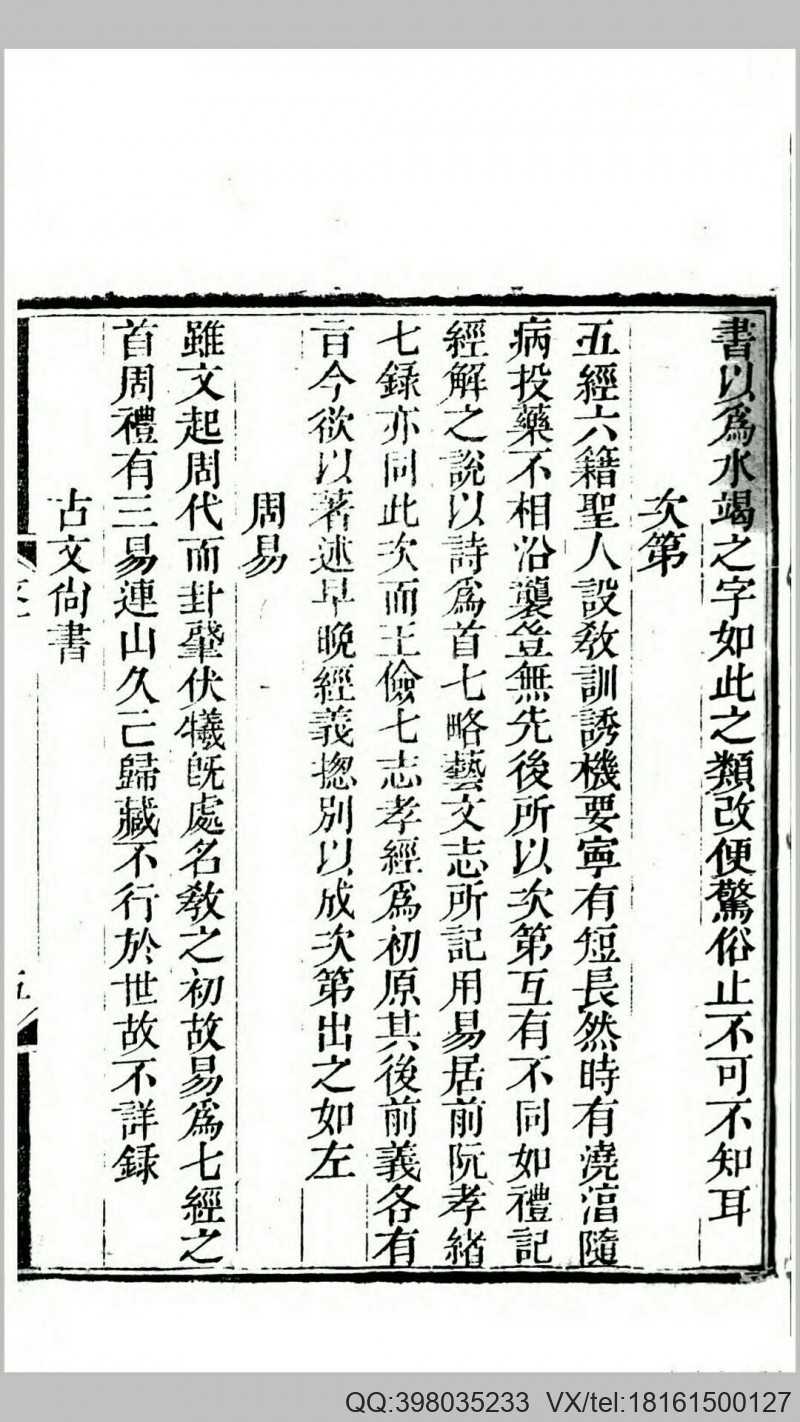 書以爲水竭之字如此之類改便驚俗止不可不知耳
次第
五經六籍聖人設敎訓誘機要寧有短長然時有澆湻隨
病投藥不相沿襲豈無先後所以次第互有不同如禮記
經解之說以詩爲首七略藝文志所記用易居前阮孝緒
七錄亦同此次而王儉七志孝經爲初原其後前義各有
旨今欲以著述早晚經義揔別以成次第出之如左
周易
雖文起周代而卦肇伏犧旣處名敎之初故易爲七經之
首周禮有三易連山久亡歸藏不行於世故不詳録
古文尙書
五
QQ:398035233 VX/tel:18161500127